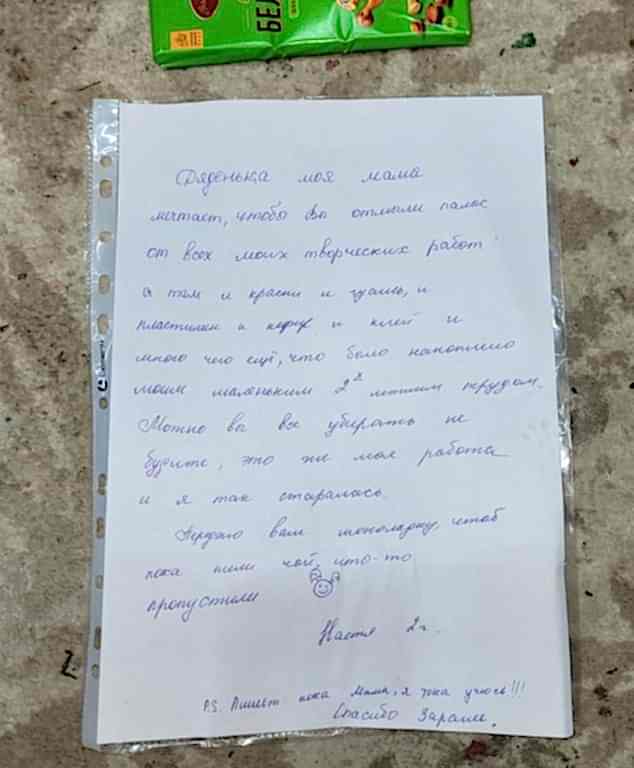 БЕЛ
Дяденька моя мама
мечтает, чтобы вы отмыли палас
от всех моих творческих работ
а там и краски и гуашь, и
пластилин и и клей и
много чего ещё, что было накоплено
моим маленьким 2х летним трудом.
Можно вы все убирать не
будите, это же моя работа
и я так старалась.
Передаю вам шоколадку, чтоб
пока пили чай, что-то
пропустили
Настя 2г.
P.S. Пишет пока мама, я пока учусь!!!
Спасибо Заранее.